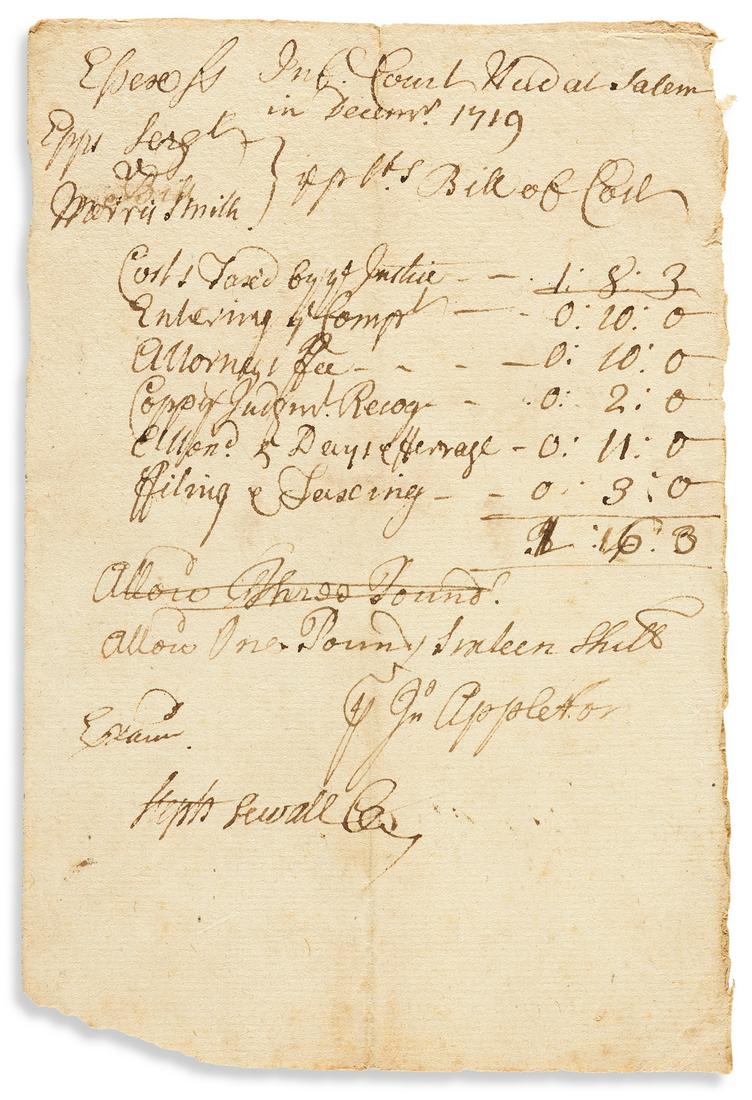 Essex ss Inf. Court Held at Salem
in Decemr. 1719
Epps Sergt
vs
Morris Smith } ye plts Bill of Cost
Costs Taxd by ye Justice - - 1: 8: 3
Entering ye Compt - - 0: 10: 0
Attorneys ffee - - - - 0: 10: 0
Coppys Judgmt. Recog - - 0: 2: 0
Attend. 5 Days & - 0: 11: 0
ffiling & Taxeing - - 0: 3: 0
1: 16: 3
Allowd Three Pounds.
Allowd One Pound Sixteen Shills
p Jno Appleton
Examd.
Steph Sewall Cler